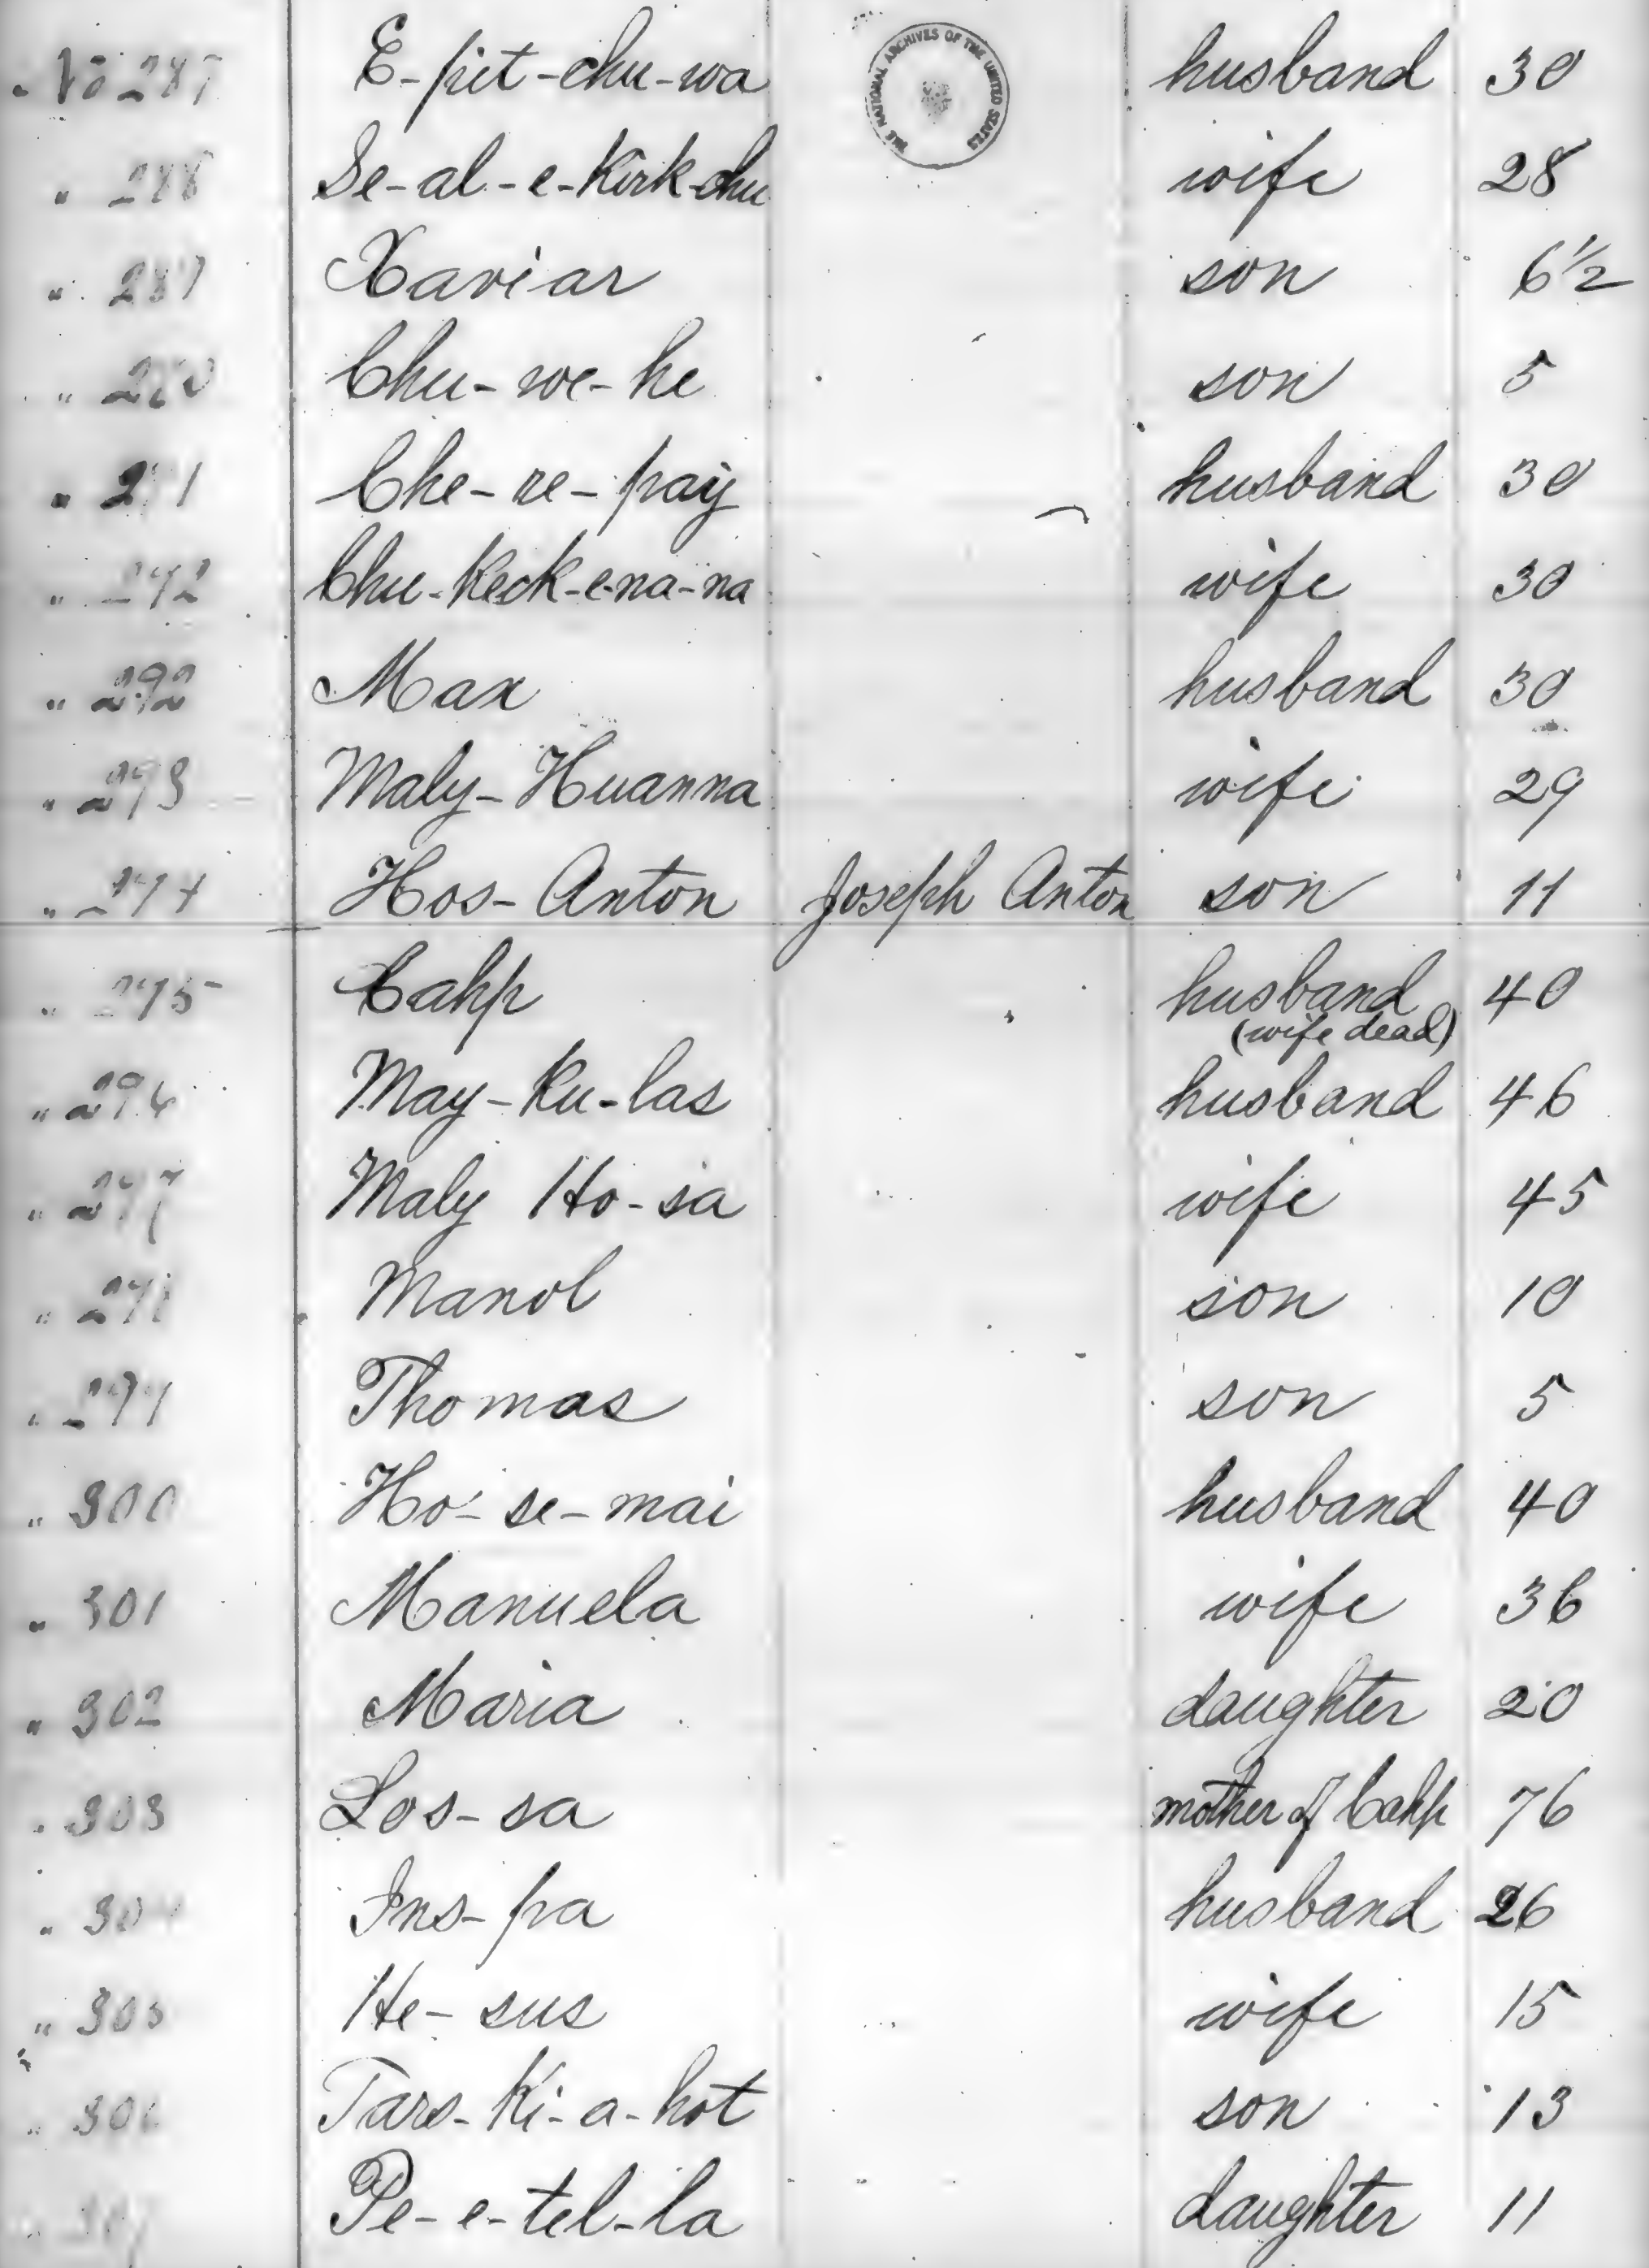 No 287 E-pit-chu-wa husband 30
THE NATIONAL ARCHIVES OF THE UNITED STATES
" 288 Se-al-e-Kirk-chu wife 28
" 289 Xaviar son 6 1/2
" 290 Chu-we-he son 5
" 291 Che-re-pay husband 30
" 292 Chu-Keck-e-na-na wife 30
" 292 Max husband 30
" 293 Maly-Huanna wife 29
" 294 Hos-Anton Joseph Anton son 11
" 295 Cahp husband 40
(wife dead)
" 296 May-Ku-las husband 46
" 297 Maly Ho-sa wife 45
" 298 Manol son 10
" 299 Thomas son 5
" 300 Ho-se-mai husband 40
" 301 Manuela wife 36
" 302 Maria daughter 20
" 303 Los-sa mother of Cahp 76
" 304 Ins-pa husband 26
" 305 He-sus wife 15
" 306 Tars-Ki-a-hot son 13
307 Pe-e-tel-la daughter 11